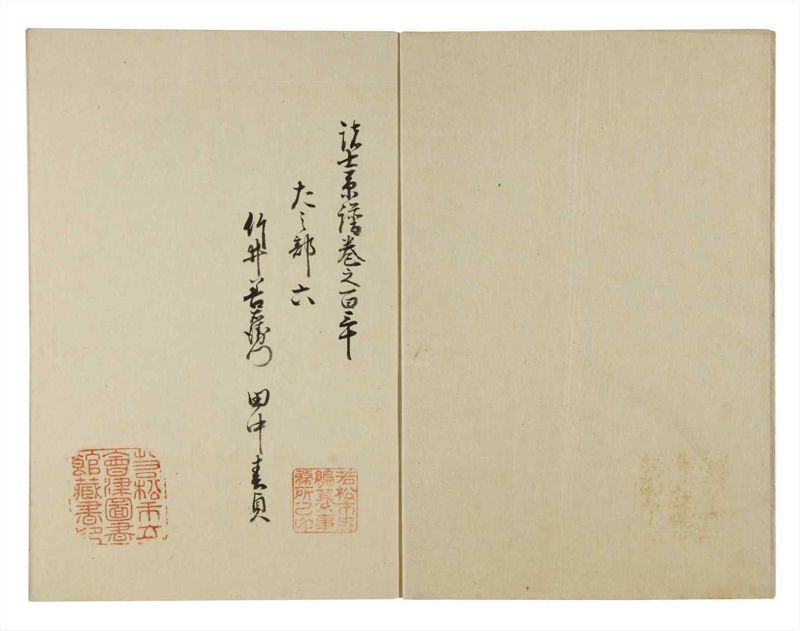 諸士系譜巻之百三十
た之部 六
竹井善左衛門 田中貞
若松市史
編纂事
務所之印
若松市立
會津圖書
館藏書印